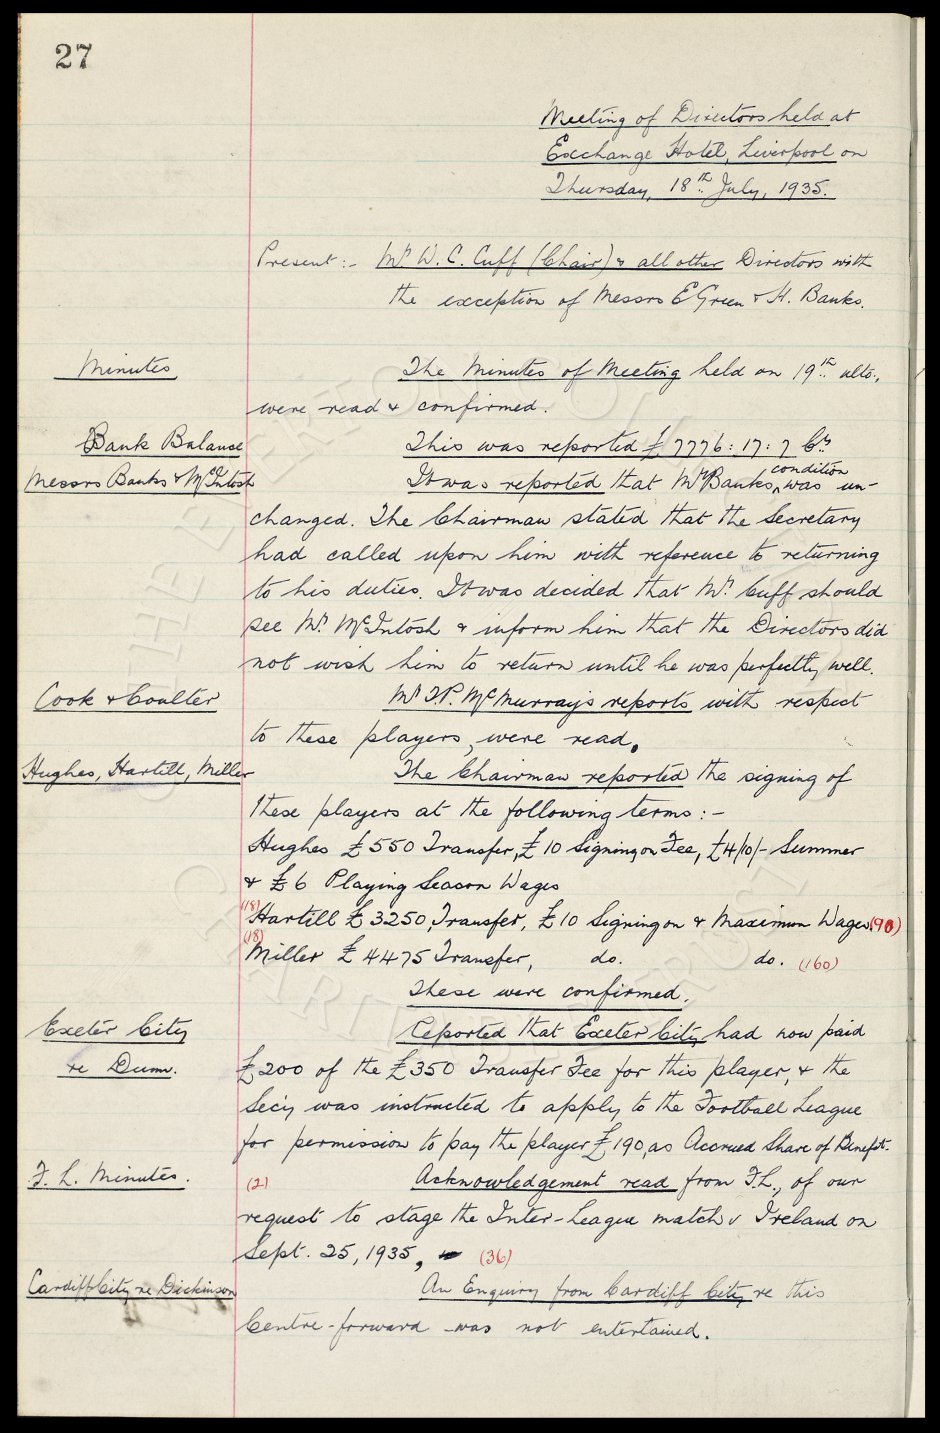 27
Meeting of Directors held at
Exchange Hotel, Liverpool on
Thursday, 18th July, 1935.
Present:- Mr W. C. Cuff (Chair) & all other Directors with
the exception of Messrs E Green & H. Banks.
Minutes The Minutes of Meeting held on 19th ulto.,
were read & confirmed.
Bank Balance This was reported £7776: 17: 7 Cr
condition
Messrs Banks & McIntosh It was reported that Mr Banks, ^ was un-
changed. The Chairman stated that the Secretary
had called upon him with reference to returning
to his duties. It was decided that Mr. Cuff should
see Mr. McIntosh & inform him that the Directors did
not wish him to return until he was perfectly well.
Cook & Coulter Mr T.P. McMurray's reports with respect
to these players, were read.
Hughes, Hartill, Miller The Chairman reported the signing of
these players at the following terms:-
Hughes £550 Transfer, £10 Signing on Fee, £4/10/- Summer
& £6 Playing Season Wages
(18) Hartill £3250, Transfer, £10 Signing on & Maximum Wages (90)
(18) Miller £4475 Transfer, do. do. (160)
These were confirmed.
Exeter City Reported that Exeter City had now paid
re Dunn. £200 of the £350 Transfer Fee for this player, & the
Sec'y was instructed to apply to the Football League
for permission to pay the player £190, as Accrued Share of Benefit.
F. L. Minutes. (2) Acknowledgement read from F.L., of our
request to stage the Inter-League match v Ireland on
Sept. 25, 1935, (36)
Cardiff City re Dickinson An Enquiry from Cardiff City re this
Centre-forward was not entertained.
THE EVERTON COLLECTION
CHARITABLE TRUST